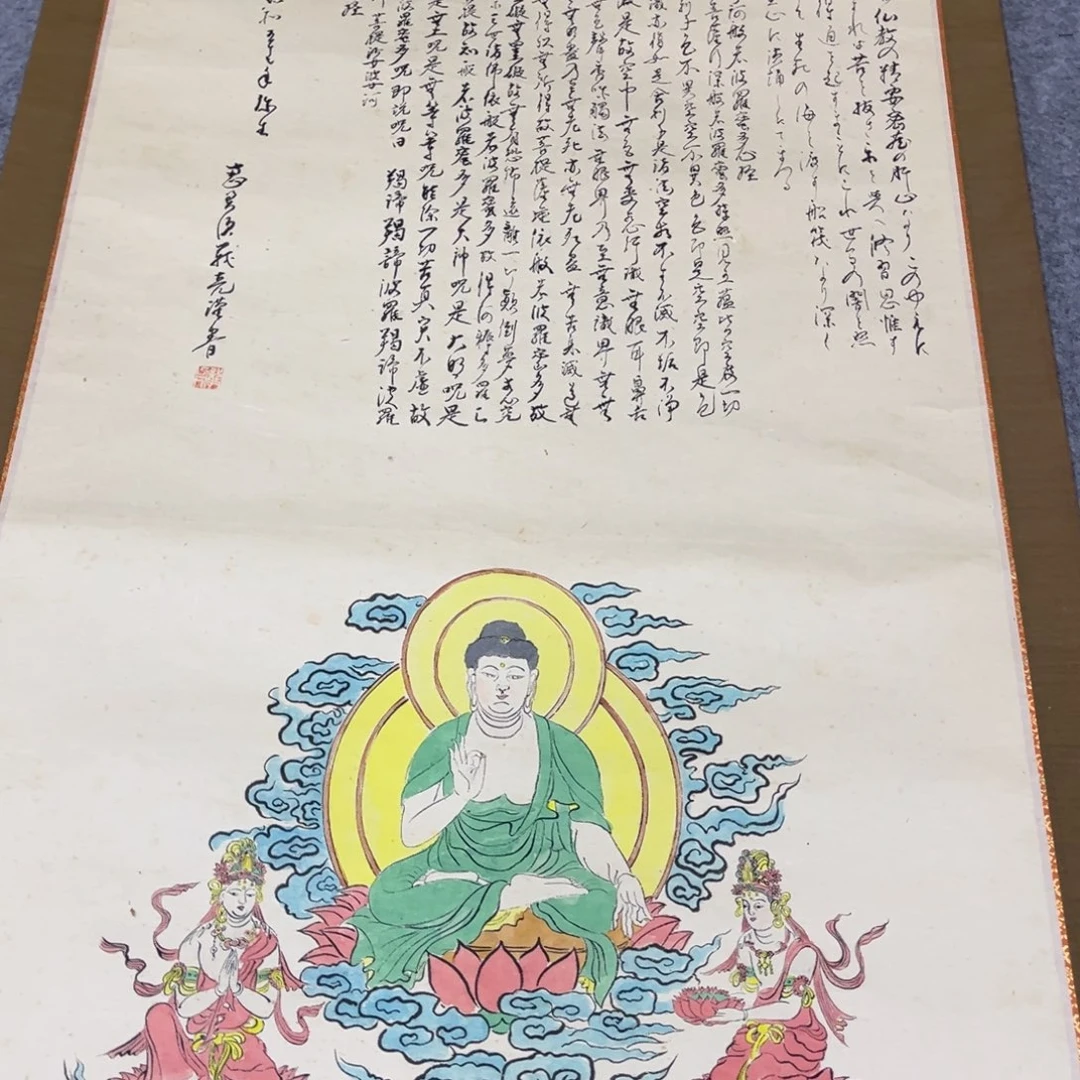 仏教の精要密蔵の肝心なりこのゆえに
れば苦を抜き楽を与へ修習思惟す
得道を起すまことにこれ世間の闇を照
生死の海を渡す船筏なり深く
至心に読誦したてまつる
訶般若波羅蜜多心経
菩薩行深般若波羅蜜多時照見五蘊皆空度一切
利子色不異空空不異色色即是空空即是色
識亦復如是舎利子是諸法空相不生不滅不垢不浄
減是故空中無色無受想行識無眼耳鼻舌
色聲香味触法無眼界乃至無意識界無無
無明盡乃至無老死亦無老死盡無苦集滅道無
得以無所得故菩提薩埵依般若波羅蜜多故
礙無罣礙故無有恐怖遠離一切顛倒夢想究
三世諸佛依般若波羅蜜多故得阿耨多羅三
提故知般若波羅蜜多是大神呪是大明呪是
是無上呪是無等等呪能除一切苦真実不虚故
波羅蜜多呪即説呪曰 羯諦羯諦波羅羯諦波羅
菩提娑婆訶
経
和五十年
義亮謹書